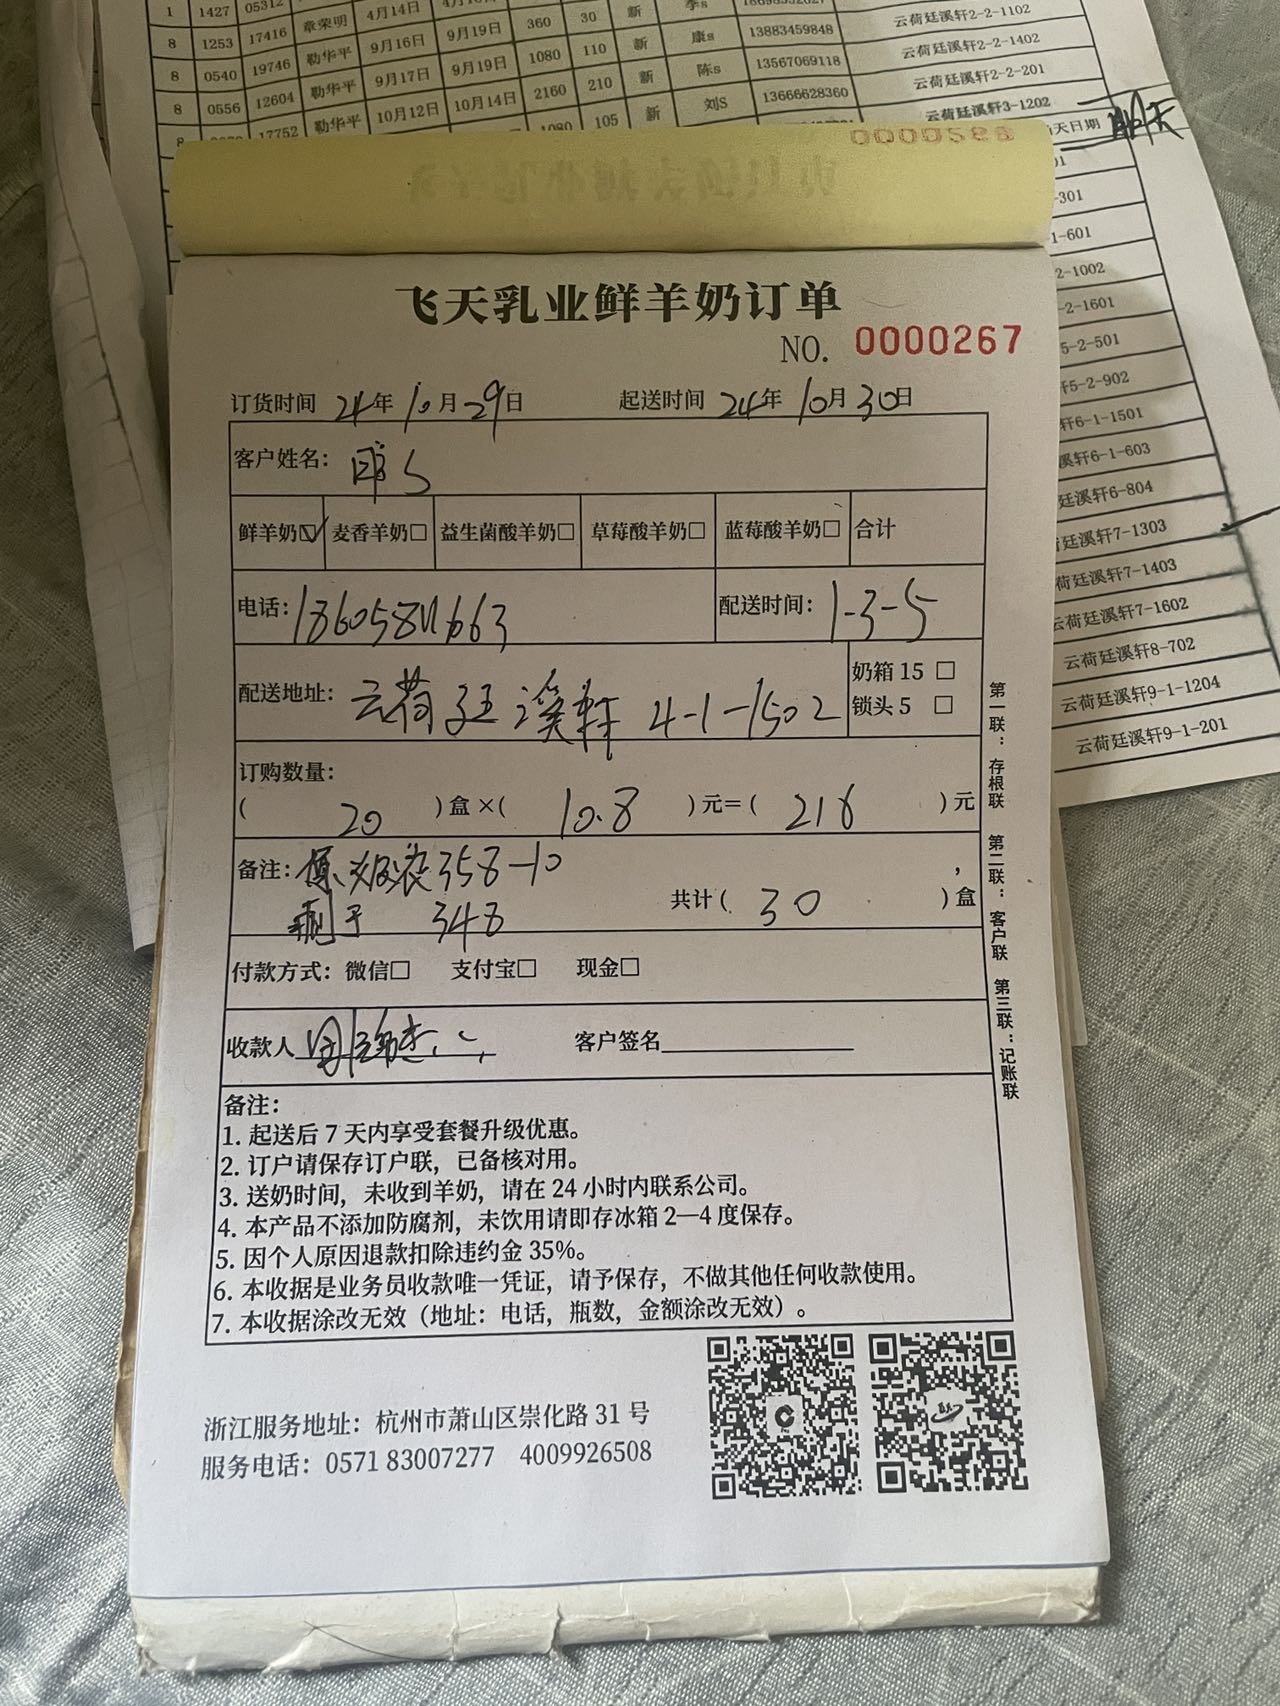 1427 05312 章荣明 4月14日
8 1253 17416 勒华平 9月16日 9月19日 360 30 新 李s
8 0540 19746 勒华平 9月17日 9月19日 1080 110 新 康s 13883459848 云荷廷溪轩2-2-1102
8 0556 12604 勒华平 10月12日 10月14日 2160 210 新 陈s 13567069118 云荷廷溪轩2-2-1402
17752 1080 105 新 刘S 13666628360 云荷廷溪轩2-2-201
云荷廷溪轩3-1202
天日期
0000268
-301
1-601
2-1002
-2-1601
5-2-501
轩5-2-902
轩6-1-1501
溪轩6-1-603
廷溪轩6-804
廷溪轩7-1303
荷廷溪轩7-1403
云荷廷溪轩7-1602
云荷廷溪轩8-702
云荷廷溪轩9-1-1204
云荷廷溪轩9-1-201
飞天乳业鲜羊奶订单
NO. 0000267
订货时间 24年10月29日 起送时间 24年10月30日
客户姓名: S
鲜羊奶☑ 麦香羊奶□ 益生菌酸羊奶□ 草莓酸羊奶□ 蓝莓酸羊奶□ 合计
电话: 配送时间: 1-3-5
配送地址: 云荷廷溪轩 4-1-1502 奶箱 15 □
锁头 5 □
订购数量:
( 20 )盒×( 10.8 )元=( 216 )元
备注: 358-10
348 共计( 30 )盒
付款方式: 微信□ 支付宝□ 现金□
收款人 客户签名
备注:
1. 起送后 7 天内享受套餐升级优惠。
2. 订户请保存订户联，已备核对用。
3. 送奶时间，未收到羊奶，请在 24 小时内联系公司。
4. 本产品不添加防腐剂，未饮用请即存冰箱 2—4 度保存。
5. 因个人原因退款扣除违约金 35%。
6. 本收据是业务员收款唯一凭证，请予保存，不做其他任何收款使用。
7. 本收据涂改无效（地址：电话，瓶数，金额涂改无效）。
第一联：存根联 第二联：客户联 第三联：记账联
浙江服务地址：杭州市萧山区崇化路 31 号
服务电话：0571 83007277 4009926508